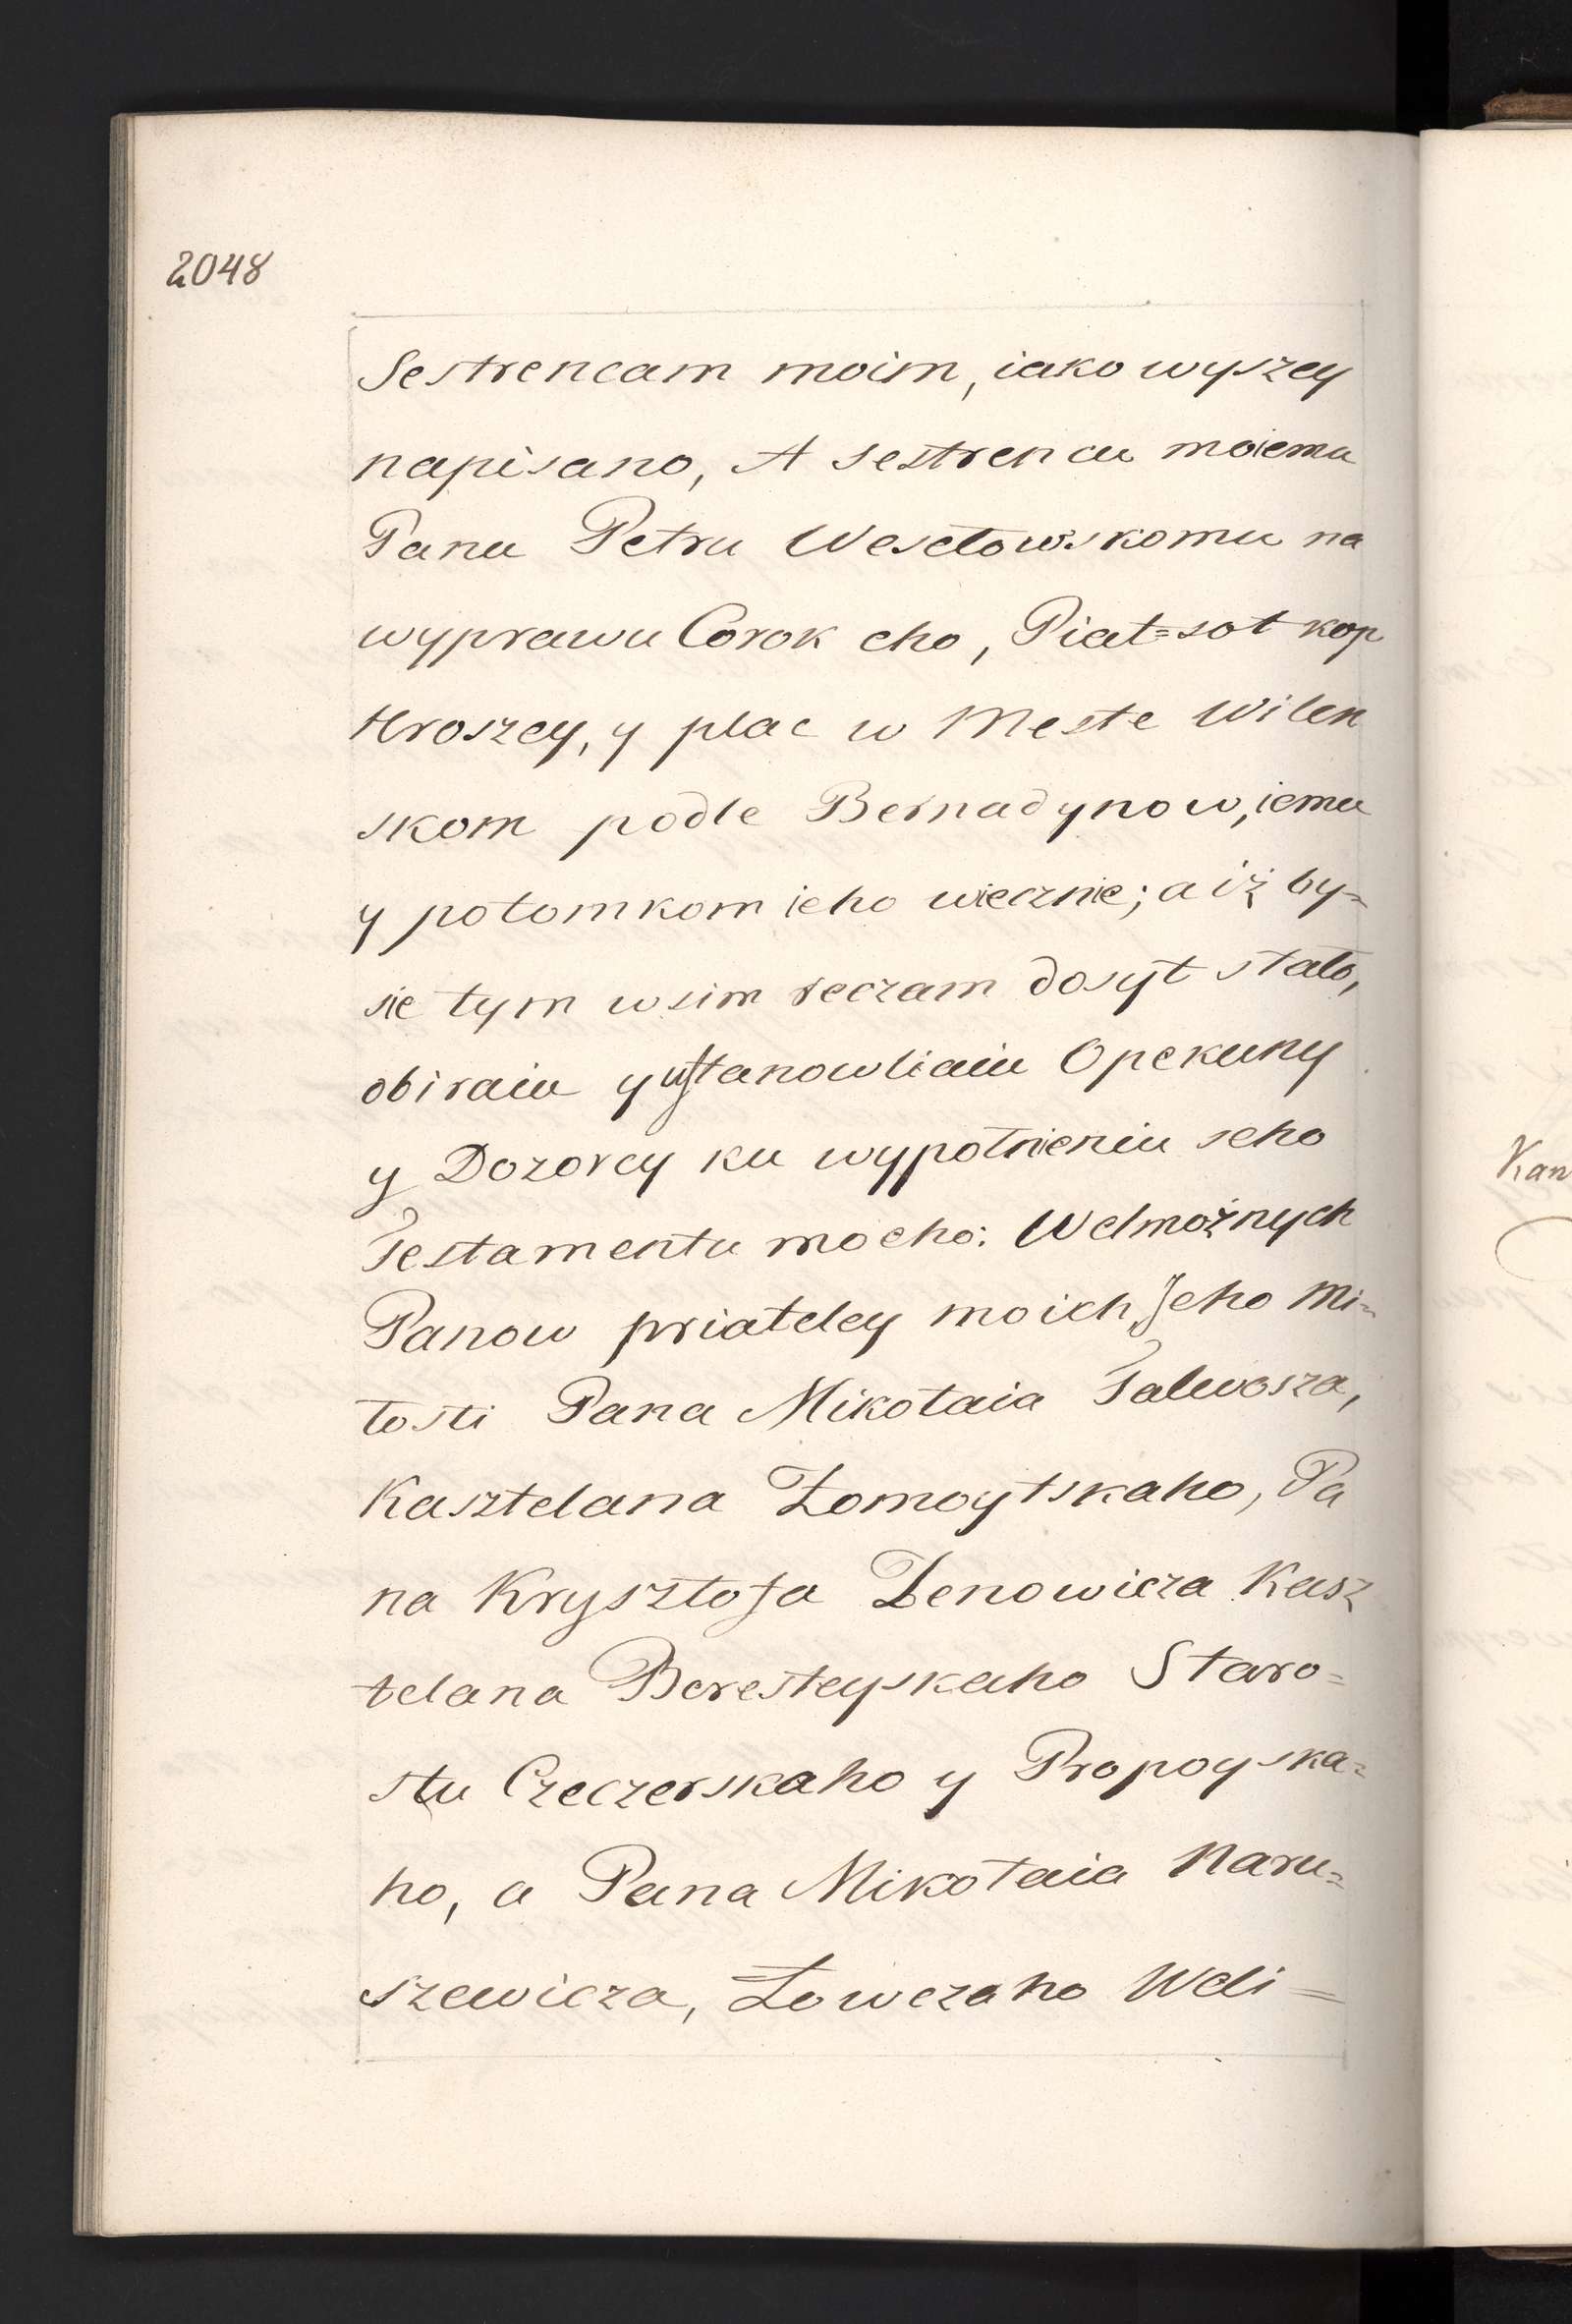 2048
Sestrencam moim, iako wyszey
napisano, A sestrencu moiemu
Panu Petru Wesełowskomu na
wyprawu Corok eho, Piat=sot kop
Hroszey, y plac w Meste Wilen
skom podle Bernadynow, iemu
y potomkom ieho wiecznie; a iż by=
sie tym wsim reczam dosyt stało,
obiraiu y ustanowliaiu Opekuny
y Dozorcy ku wypołnieniu seho
Testamentu moeho: Welmożnych
Panow priateley moich, Jeho Mi=
łosti Pana Mikołaia Talwosza,
Kasztelana Żomoytskaho, Pa
na Krysztofa Zenowicza Kasz
telana Beresteyskaho Staro=
stu Czeczerskaho y Propoyska=
ho, a Pana Mikołaia Naru=
szewicza, Łowczaho Weli=
Kan